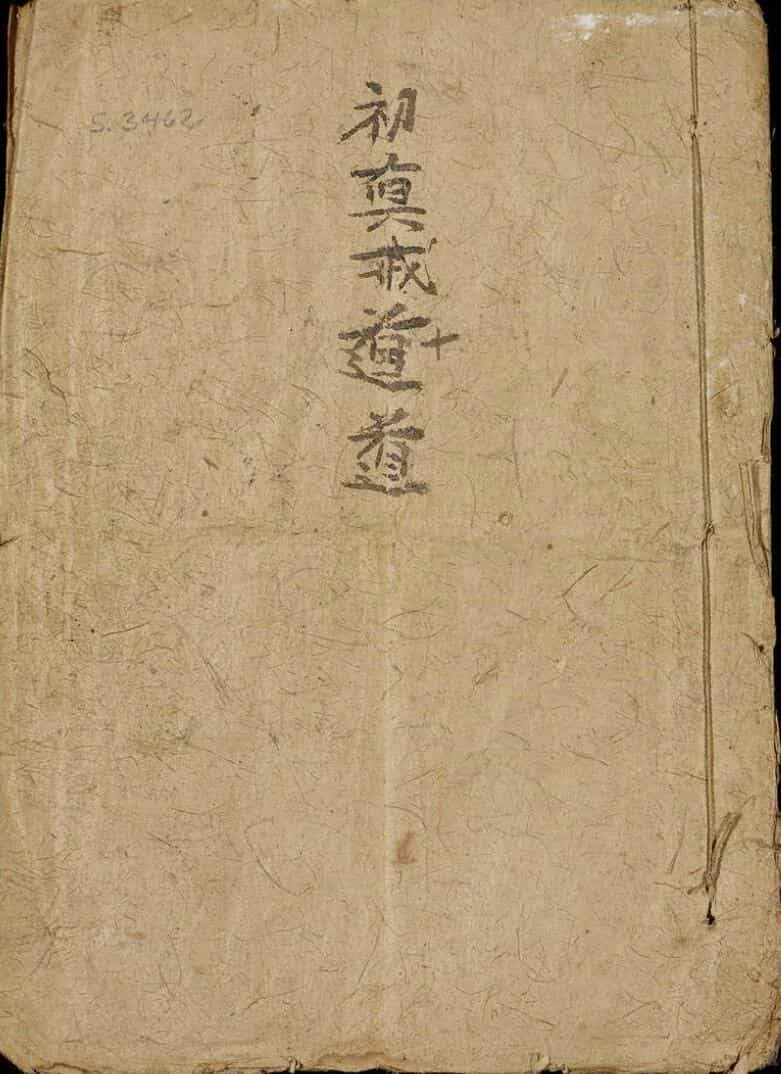 初真戒道道
十
S. 3462